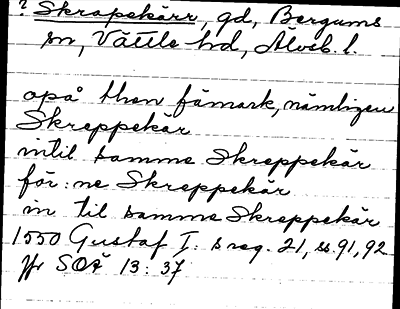 ? Skrapekärr, gd, Bergums
sn, Vättle hd, Älvsb. l.
opå then fämark, nämligen
Skreppekär
intil samme Skreppekär
för: ne Skreppekär
in til samme Skreppekär
1550 Gustaf I: s reg. 21, ss. 91, 92
Jfr SOÄ 13: 37